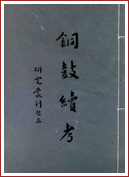 銅鼓續考
研究叢刊之三